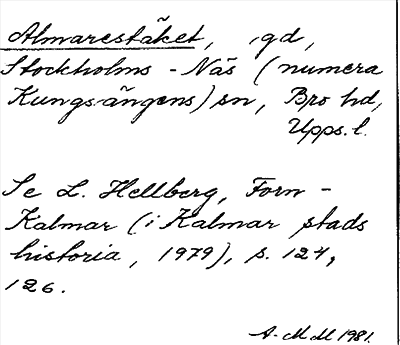 Almarestäket, gd,
Stockholms-Näs (numera
Kungsängens) sn, Bro hd,
Upps. l.
Se L. Hellberg, Forn-
Kalmar (i Kalmar stads
historia, 1979), s. 124,
126.
A-M M 1981.